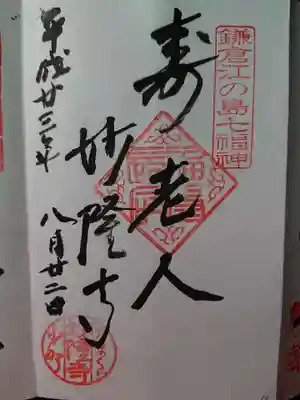 鎌倉江の島七福神
寿老人
妙隆寺
平成廿三年
八月廿二日